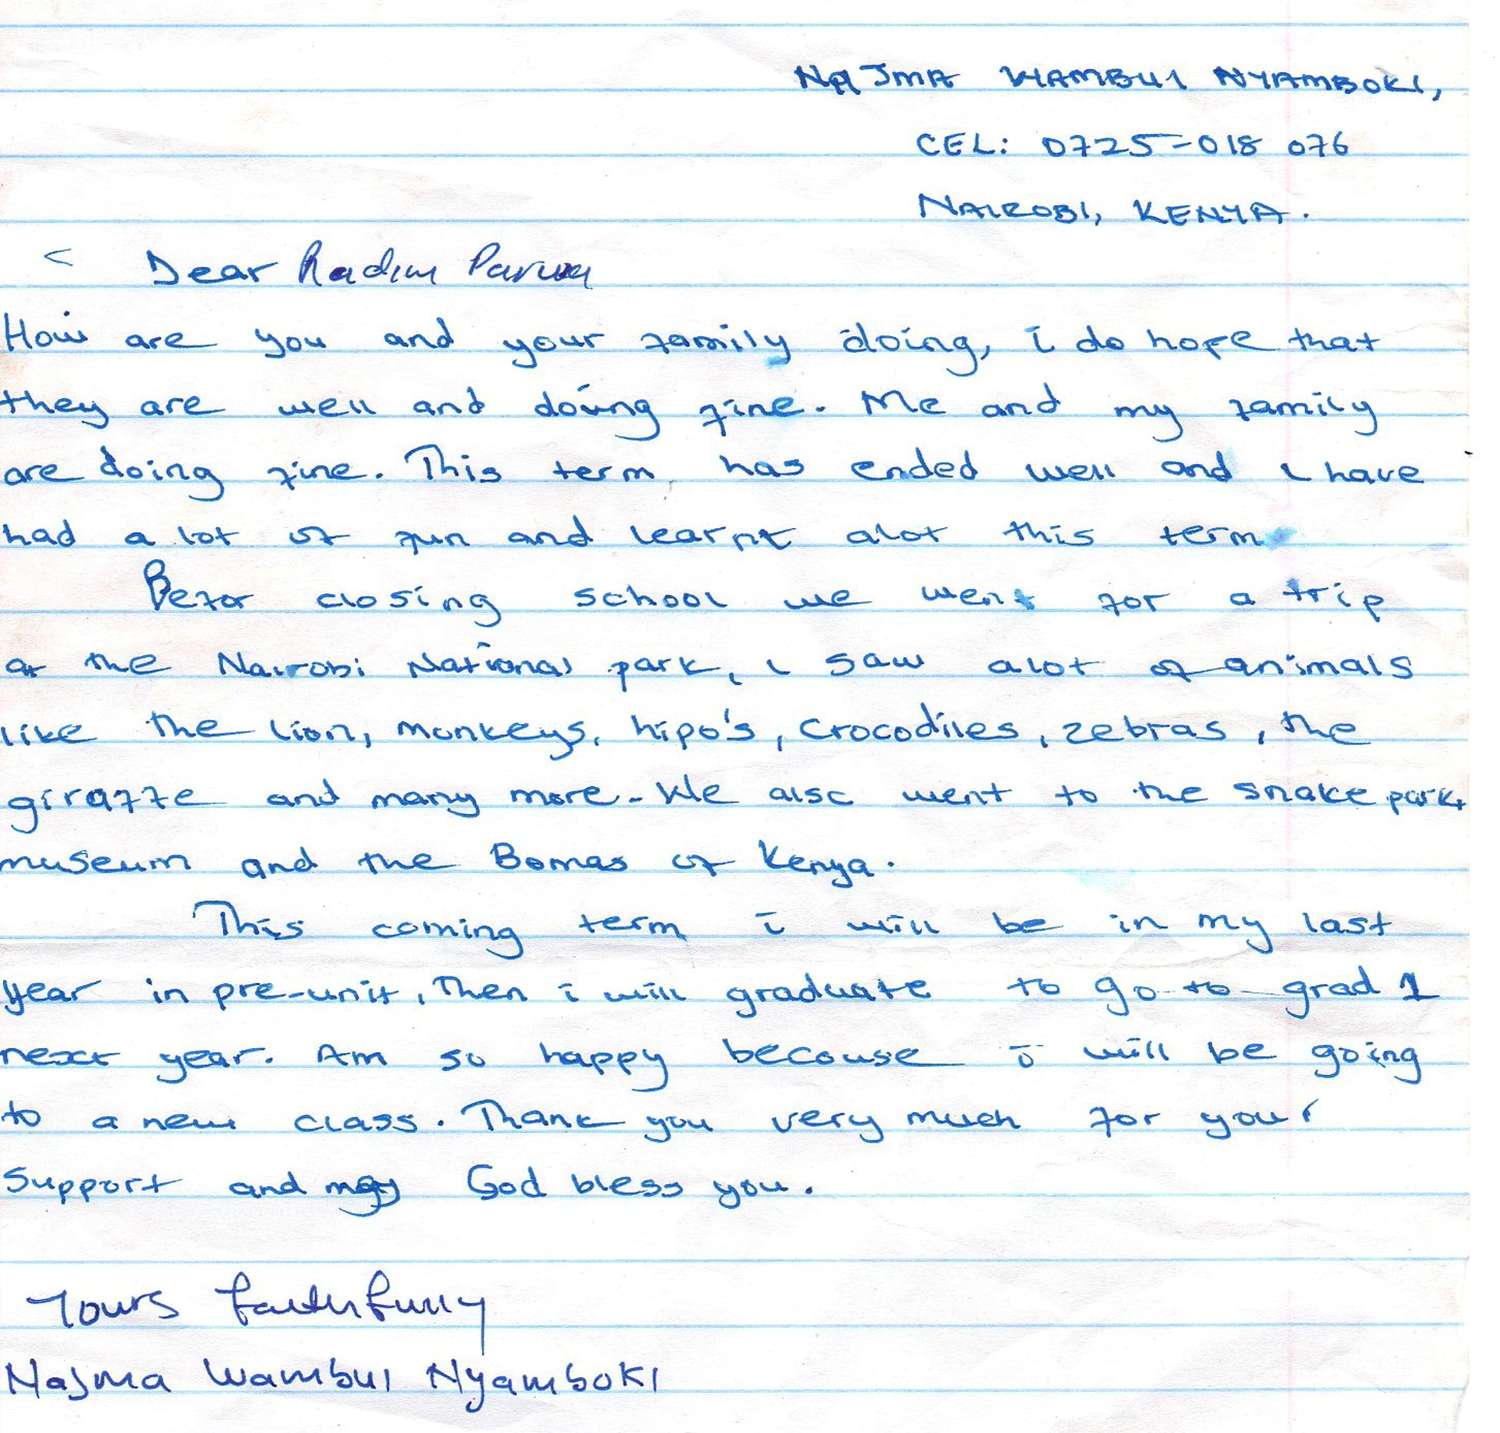 NAJMA WAMBUI NYAMBOKI,
CEL: 0725-018 076
NAIROBI, KENYA.
Dear Radim
How are you and your family doing, i do hope that
they are well and doing fine. Me and my family
are doing fine. This term has ended well and i have
had a lot of fun and learnt alot this term
Befor closing school we went for a trip
at the Nairobi National park, i saw alot of animals
like the lion, monkeys, hipo's, crocodiles, zebras, the
giraffe and many more. We also went to the snake park,
museum and the Bomas of Kenya.
This coming term i will be in my last
year in pre-unit, Then i will graduate to go to grad 1
next year. Am so happy becouse i will be going
to a new class. Thank you very much for your
support and may God bless you.
Yours faithfully
Najma Wambui Nyamboki